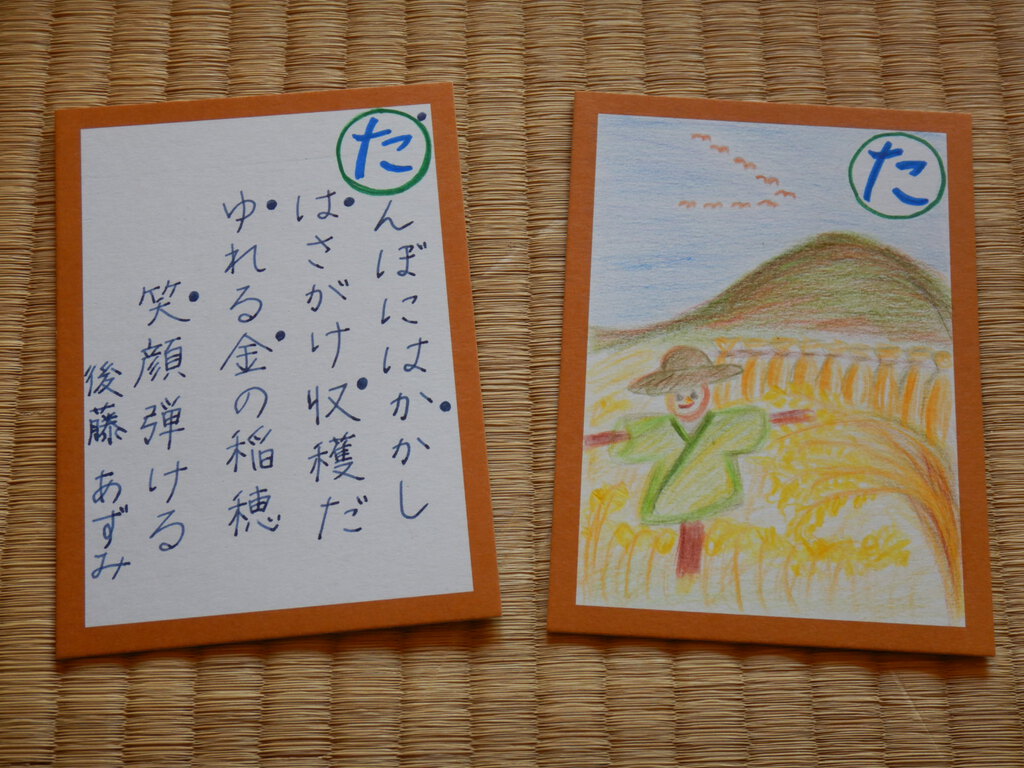 た
んぼにはかかし
はさがけ収穫だ
ゆれる金の稲穂
笑顔弾ける
後藤 あずみ
た